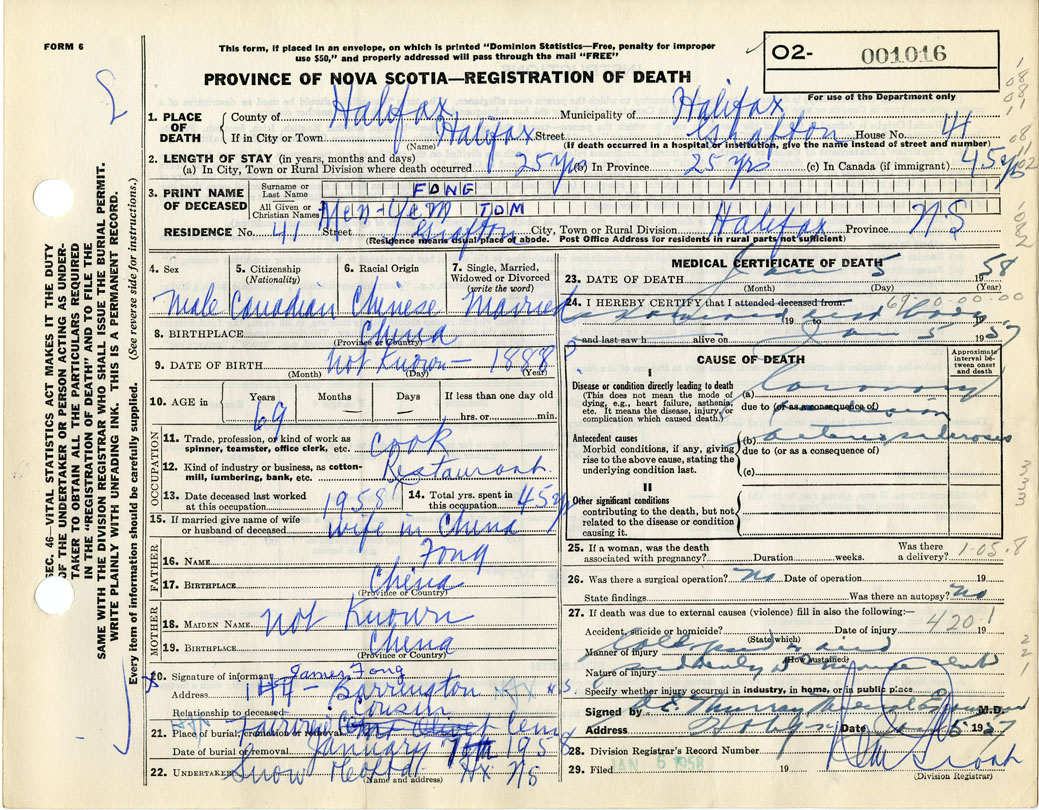 FORM 6
This form, if placed in an envelope, on which is printed "Dominion Statistics—Free, penalty for improper
use $50," and properly addressed will pass through the mail "FREE"
PROVINCE OF NOVA SCOTIA—REGISTRATION OF DEATH
O2- 001016
For use of the Department only
1. PLACE OF DEATH
County of Halifax Municipality of Halifax
If in City or Town Halifax Street Grafton House No. 41
(Name) (If death occurred in a hospital or institution, give the name instead of street and number)
2. LENGTH OF STAY (in years, months and days)
(a) In City, Town or Rural Division where death occurred 25 yrs (b) In Province 25 yrs (c) In Canada (if immigrant) 45 yrs
3. PRINT NAME OF DECEASED
Surname or Last Name FONG
All Given or Christian Names Yen-Yem TOM
RESIDENCE No. 41 Street Grafton City, Town or Rural Division Halifax Province NS
(Residence means usual place of abode. Post Office Address for residents in rural parts not sufficient)
4. Sex 5. Citizenship (Nationality) 6. Racial Origin 7. Single, Married, Widowed or Divorced (write the word)
Male Canadian Chinese Married
8. BIRTHPLACE China
(Province or Country)
9. DATE OF BIRTH Not Known — 1888
(Month) (Day) (Year)
10. AGE in Years Months Days If less than one day old
69 — — hrs. or min.
OCCUPATION
11. Trade, profession, or kind of work as spinner, teamster, office clerk, etc. Cook
12. Kind of industry or business, as cotton-mill, lumbering, bank, etc. Restaurant
13. Date deceased last worked at this occupation 1958
14. Total yrs. spent in this occupation 45 yrs
15. If married give name of wife or husband of deceased wife in China
FATHER
16. NAME Fong
17. BIRTHPLACE China
(Province or Country)
MOTHER
18. MAIDEN NAME Not Known
19. BIRTHPLACE China
(Province or Country)
20. Signature of informant James Fong
Address Barrington N.S.
Relationship to deceased Cousin
21. Place of burial, cremation or removal
Date of burial or removal January 7th 1958
22. UNDERTAKER Snow Hx NS
(Name and address)
MEDICAL CERTIFICATE OF DEATH
23. DATE OF DEATH Jan 5 1958
(Month) (Day) (Year)
24. I HEREBY CERTIFY that I attended deceased from:
19 to 19
and last saw h alive on Jan 5 1957
CAUSE OF DEATH
Approximate interval between onset and death
I
Disease or condition directly leading to death
(This does not mean the mode of dying, e.g., heart failure, asthenia, etc. It means the disease, injury, or complication which caused death.)
(a) Coronary
due to (or as a consequence of)
Antecedent causes
Morbid conditions, if any, giving rise to the above cause, stating the underlying condition last.
(b) arteriosclerosis
due to (or as a consequence of)
(c)
II
Other significant conditions
contributing to the death, but not related to the disease or condition causing it.
25. If a woman, was the death associated with pregnancy? Duration weeks. Was there a delivery?
1-05.8
26. Was there a surgical operation? No Date of operation 19
State findings Was there an autopsy? No
27. If death was due to external causes (violence) fill in also the following:—
Accident, suicide or homicide? Date of injury 19
420-1
(State which)
Manner of injury Collapsed & died
(How sustained)
Nature of injury suddenly
Specify whether injury occurred in industry, in home, or in public place
Signed by Murray Medical Examiner M.D.
Address Date 5 1957
28. Division Registrar's Record Number
29. Filed JAN 6 1958 19
(Division Registrar)
SEC. 46—VITAL STATISTICS ACT MAKES IT THE DUTY
OF THE UNDERTAKER OR PERSON ACTING AS UNDER-
TAKER TO OBTAIN ALL THE PARTICULARS REQUIRED
IN THE "REGISTRATION OF DEATH" AND TO FILE THE
SAME WITH THE DIVISION REGISTRAR WHO SHALL ISSUE THE BURIAL PERMIT.
WRITE PLAINLY WITH UNFADING INK. THIS IS A PERMANENT RECORD.
Every item of information should be carefully supplied. (See reverse side for instructions.)